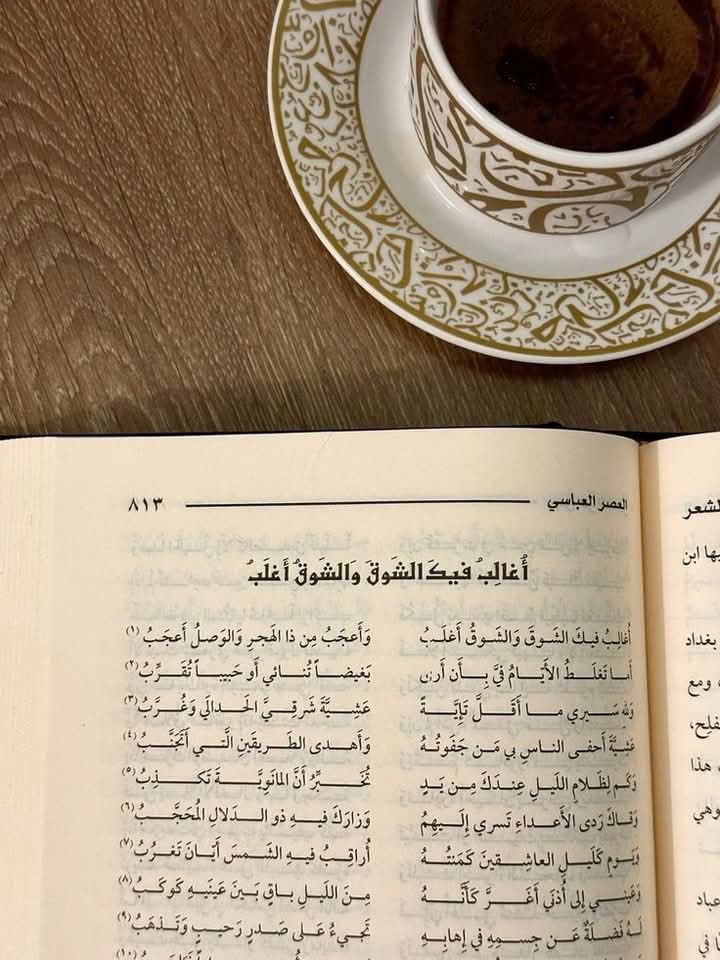 العصر العباسي ٨١٣
أُغالِبُ فيكَ الشوقَ وَالشوقُ أَغلَبُ
أُغالِبُ فيكَ الشَوقَ وَالشَوقُ أَغلَبُ وَأَعجَبُ مِن ذا الهَجرِ وَالوَصلُ أَعجَبُ (١)
أَما تَغلَطُ الأَيّامُ فِيَّ بِأَن أَرى بَغيضاً تُنائي أَو حَبيباً تُقَرِّبُ (٢)
وَلِلَّهِ سَيري ما أَقَلَّ تَإِيَّةً عَشِيَّةَ شَرقِيَّ الحَدالي وَغُرَّبُ (٣)
عَشِيَّةَ أَحفى الناسِ بي مَن جَفَوتُهُ وَأَهدى الطَريقَينِ الَّتي أَتَجَنَّبُ (٤)
وَكَم لِظَلامِ اللَيلِ عِندَكَ مِن يَدٍ تُخَبِّرُ أَنَّ المانَوِيَّةَ تَكذِبُ (٥)
وَقاكَ رَدى الأَعداءِ تَسري إِلَيهِمُ وَزارَكَ فيهِ ذو الدَلالِ المُحَجَّبُ (٦)
وَيَومٍ كَلَيلِ العاشِقينَ كَمَنتُهُ أُراقِبُ فيهِ الشَمسَ أَيّانَ تَغرُبُ (٧)
وَعَيني إِلى أُذنَي أَغَرَّ كَأَنَّهُ مِنَ اللَيلِ باقٍ بَينَ عَينَيهِ كَوكَبُ (٨)
لَهُ فَضلَةٌ عَن جِسمِهِ في إِهابِهِ تَجيءُ عَلى صَدرٍ رَحيبٍ وَتَذهَبُ (٩)
(١٠)
ابن
بغداد
، ومع
هذا
وهي
عباد
في